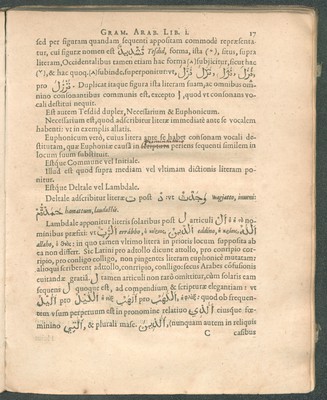 GRAM. ARAB. LIB. I. 17
sed per figuram quandam sequenti appositam commodè repræsenta-
tur, cui figuræ nomen est تَشْدِيدٌ Tesdid, forma, ista (ّ), situs, supra
literam, Occidentalibus tamen etiam hac forma (ʌ) subjicitur, sicut hæc
(ˇ), & hac quoq; (ʌ) subinde, superponitur vt,
pro
Duplicat itaque figura ista literam suam, ac omnibus om-
nino consonantibus communis est, excepto ا, quod vt consonans vo-
cali destitui nequit.
Est autem Tesdid duplex, Necessarium & Euphonicum.
Necessarium est, quod adscribitur literæ immediatè ante se vocalem
habenti: vt in exemplis allatis.
Euphonicum verò, cuius litera ante se habet consonam vocali de-
stitutam, quæ Euphoniæ causâ in periens sequenti similem in
locum suum substituit.
Estque Commune vel Initiale.
Illud est quod supra mediam vel vltimam dictionis literam po-
nitur.
Estque Deltale vel Lambdale.
Deltale adscribitur literæ ت post د vt وَجَدْتُّ wagjatto, inueni:
hamattum, laudastis.
Lambdale apponitur literis solaribus post ل articuli ال ὁ ἡ τὸ no-
minibus præfixi: vt الرَّبُّ errabbo, ὁ κύριος, الدِّينُ eddino, ὁ νόμος, اللّٰهُ
allaho, ὁ Θεὸς: in quo tamen vltimo litera in prioris locum supposita ab
ea non differt. Sic Latini pro adtollo dicunt attollo, pro conripio cor-
ripio, pro conligo colligo, non pingentes literam euphonicè mutatam:
alioqui scriberent adttollo, conrripio, conlligo: secus Arabes cofusionis
euitandæ gratiâ. ل tamen articuli non rarò omittitur, cùm solaris eam
sequens ل quoque est, ad compendium & scripturæ elegantiam: vt
اللَّيْلُ pro اللَّيْلُ ὁ νὺξ, اللَّهَبُ pro اللَّهَبُ, اللّٰهُ pro : quod ob frequen-
tem vsum perpetuum est in pronomine relatiuo الَّذِي eiusque fœ-
minino الَّتِي, & plurali masc. الَّذِينَ, (nunquam autem in reliquis
C casibus